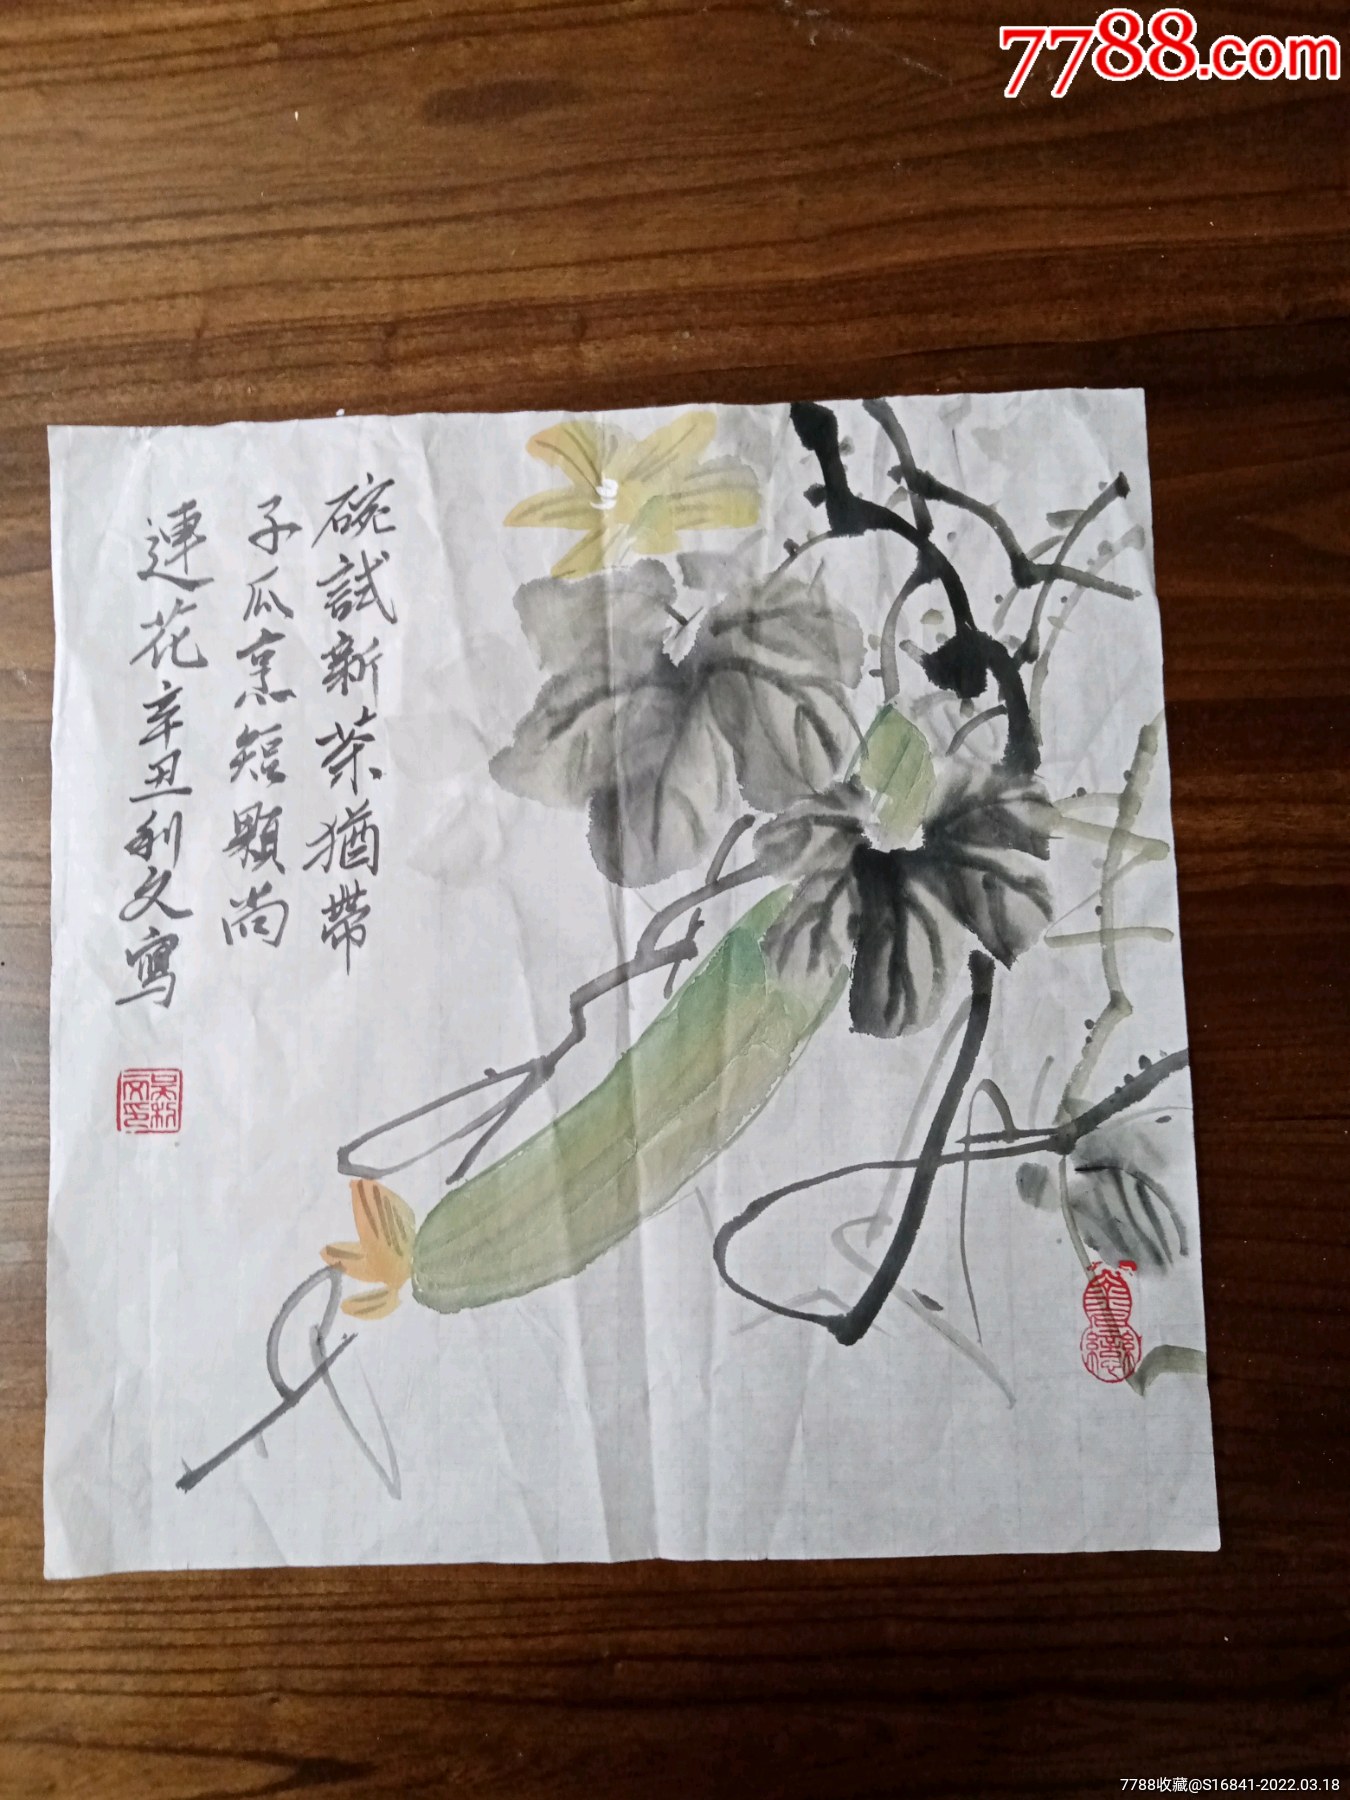 7788.com
碗試新茶猶帶
子瓜烹短顆尚
連花 辛丑利文寫
吴利文印
7788收藏@S16841-2022.03.18